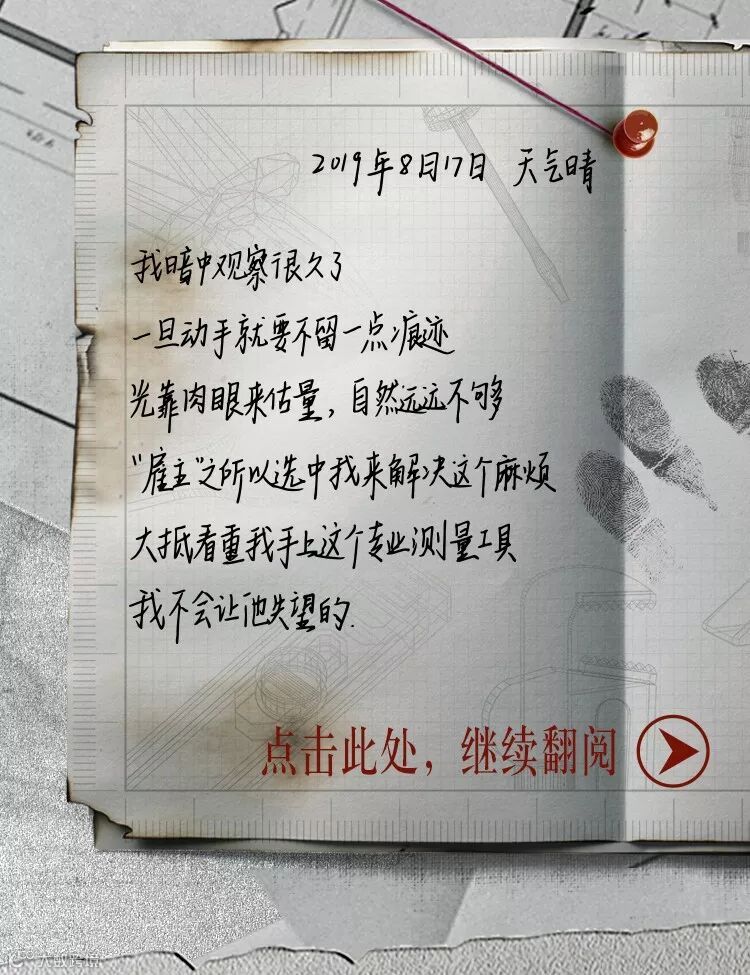 2019年8月17日 天气晴
我暗中观察很久了
一旦动手就要不留一点痕迹
光靠肉眼来估量，自然远远不够
“雇主”之所以选中我来解决这个麻烦
大抵看重我手上这个专业测量工具
我不会让他失望的.
点击此处，继续翻阅